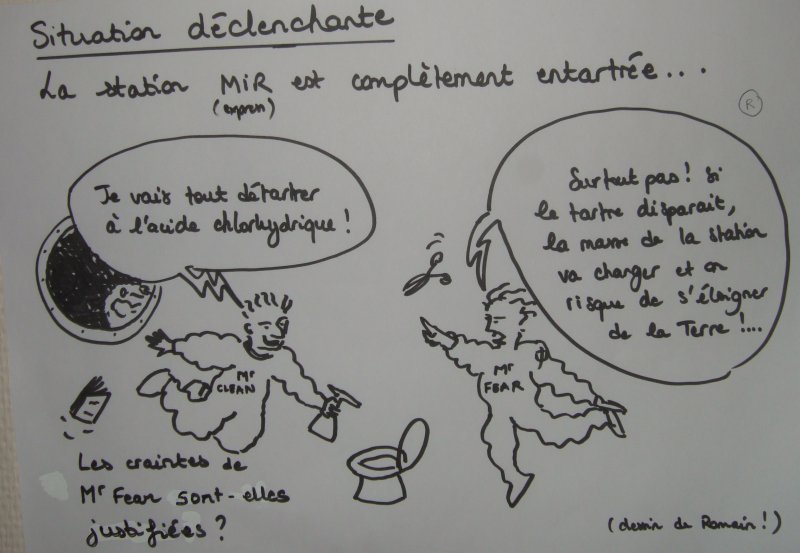 Situation déclenchante
La station MiR est complètement entartrée...
(expren)
R
Je vais tout détartrer
à l'acide chlorhydrique !
Surtout pas ! Si
le tartre disparait,
la masse de la station
va changer et on
risque de s'éloigner
de la Terre !...
Mr
CLEAN
Mr
FEAR
Les craintes de
Mr Fear sont-elles
justifiées ?
(dessin de Romain !)